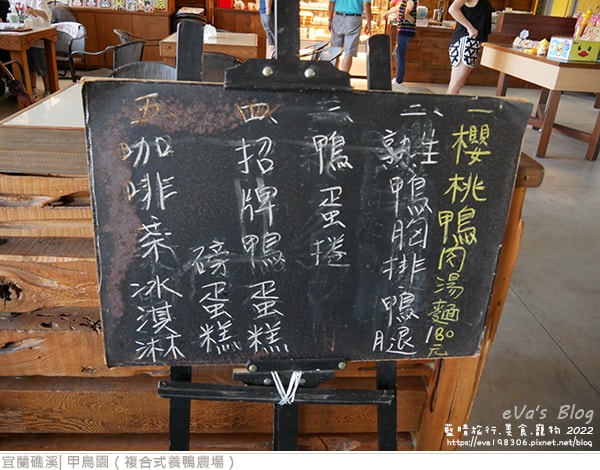 一 櫻桃鴨肉湯麵 180元
二、生熟鴨胸排、鴨腿
三、鴨蛋捲
四、招牌鴨蛋糕
磅蛋糕
五、咖啡、茶、冰淇淋
eVa's Blog
藍晴旅行.美食.寵物 2022
https://eva198306.pixnet.net/blog
宜蘭礁溪| 甲鳥園 ( 複合式養鴨農場 )